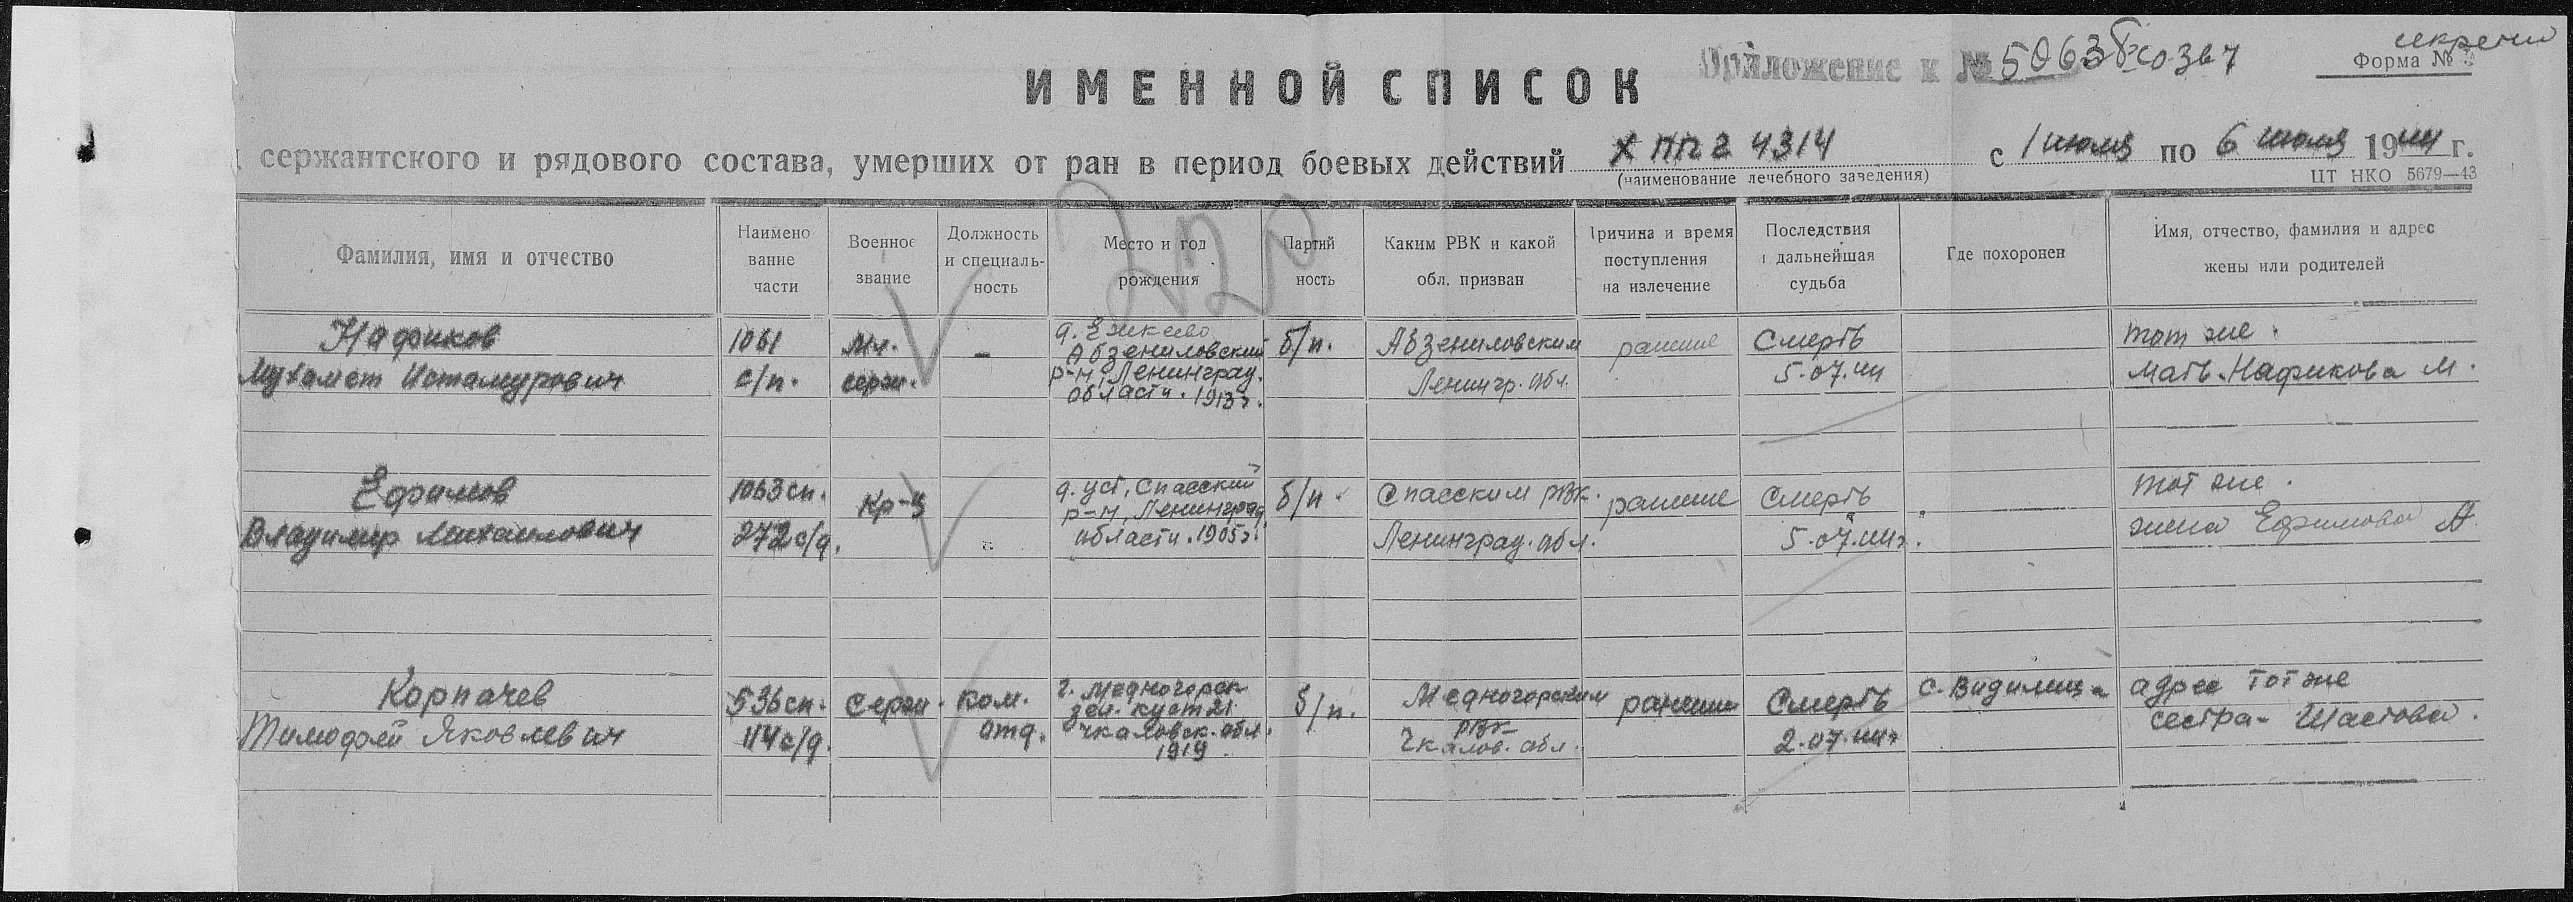 секретно
Приложение к № 50638
Форма №
ИМЕННОЙ СПИСОК
сержантского и рядового состава, умерших от ран в период боевых действий ХППГ 4314 с 1 июля по 6 июля 1944 г.
(наименование лечебного заведения)
ЦТ НКО 5679—43
220
Фамилия, имя и отчество
Наимено
вание
части
Военное
звание
Должность
и специаль-
ность
Место и год
рождения
Партий
ность
Каким РВК и какой
обл. призван
Причина и время
поступления
на излечение
Последствия
и дальнейшая
судьба
Где похоронен
Имя, отчество, фамилия и адрес
жены или родителей
Нафиков
Мухамет Истамурович
1061
с/п.
Мл.
серж.
–
Абзениловский
р-н, Ленинград.
области. 1913г.
б/п.
Абзениловским
Ленингр. обл.
ранение
Смерть
5.07.44
тот же.
мать-Нафикова М.
Ефимов
Владимир Михаилович
1063 сп.
272 с/д.
Кр-ц
д. Уст, Спасский
р-н, Ленинград.
области. 1905г.
б/п.
Спасским РВК.
Ленинград. обл.
ранение
Смерть
5.07.44г.
тот же.
жена Ефимова А
Корпачев
Тимофей Яковлевич
536 сп.
114 с/д.
Серж.
Ком.
отд.
г. Медногорск
Чкаловск. обл.
1919.
б/п.
Медногорским
РВК
Чкалов. обл.
ранение
Смерть
2.07.44г
с. Видилица
адрес тот же
сестра- Шастова.